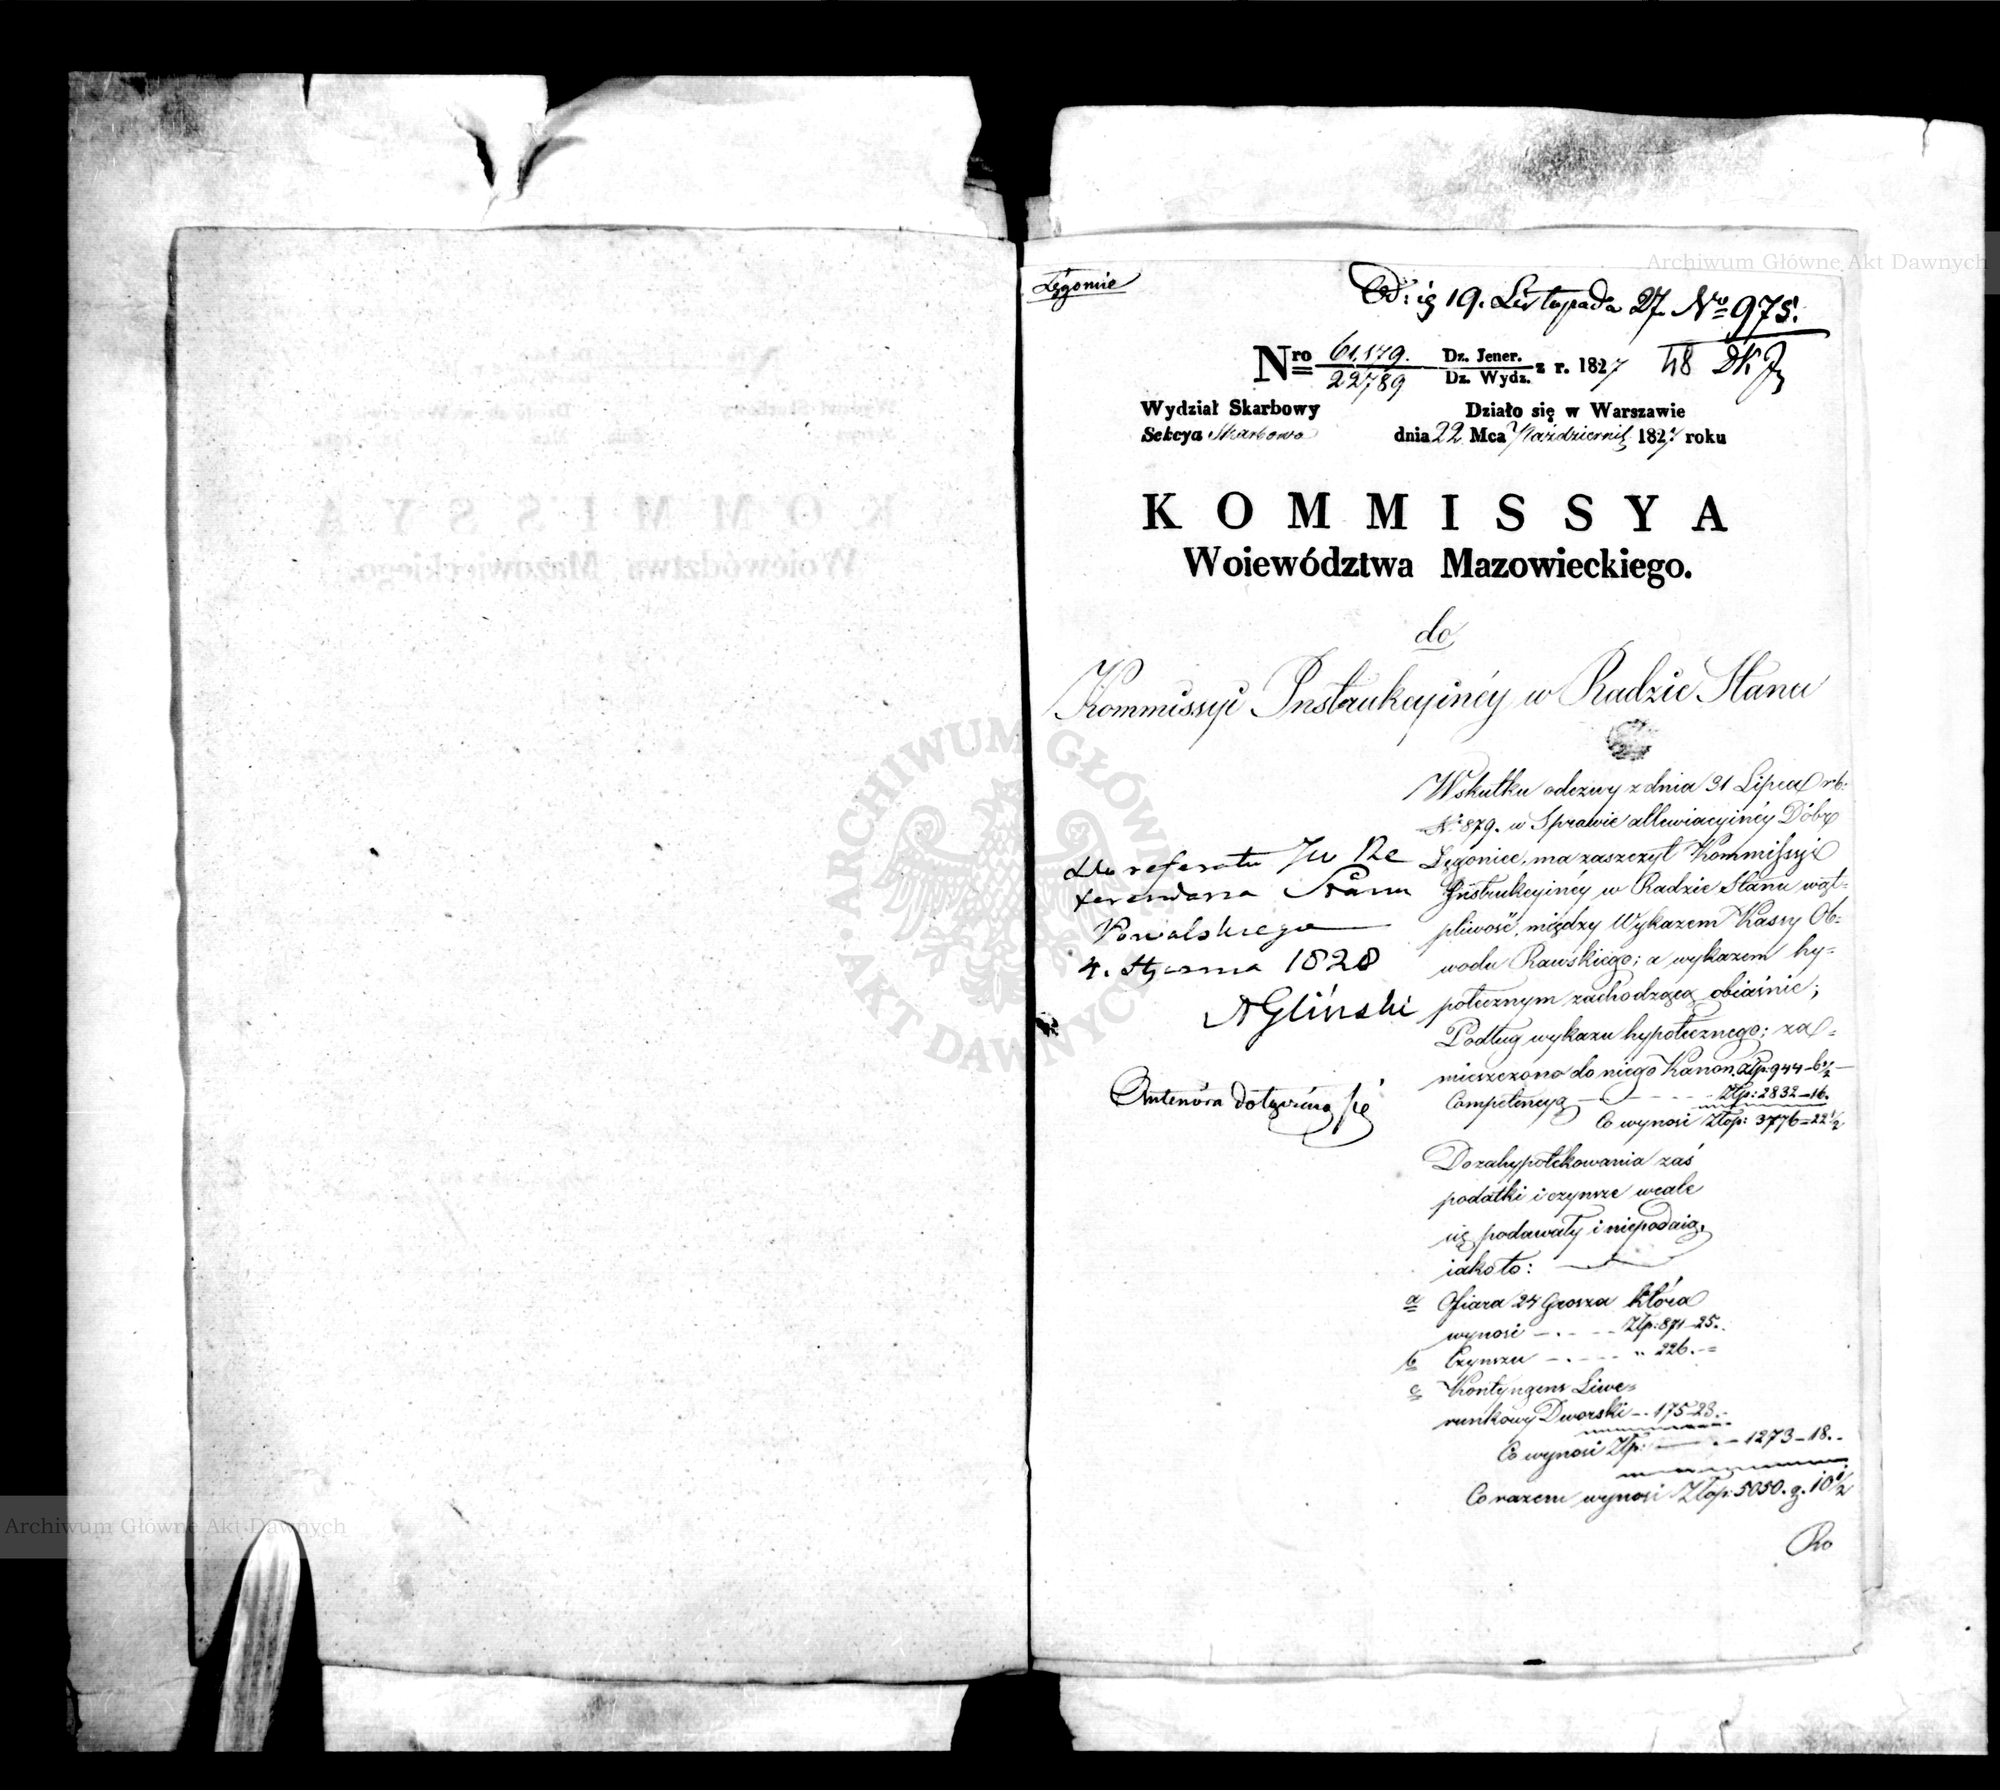 Łęgonie
Od: ię 19. Listopada 27. No 975.
Nro 61,179. Dz. Jener. z r. 1827 48
22789 Dz. Wydz.
Wydział Skarbowy Działo się w Warszawie
Sekcya Skarbowa dnia 22 Mca Październik 1827 roku
KOMMISSYA
Woiewództwa Mazowieckiego.
do
Kommissyi Instrukcyinéy w Radzie Stanu
Wskutku odezwy z dnia 31 Lipca rb:
No 879. w Sprawie allewiacyinéy Dóbr
Łęgonice, ma zaszczyt Kommissyi
Instrukcyinéy w Radzie Stanu wąt-
pliwość, między Wykazem Kassy Ob-
wodu Rawskiego; a wykazem hy-
potecznym zachodzącą obiaśnić;
Podług wykazu hypotecznego; za-
mieszczono do niego Kanon. Złp: 944–6½
Competencyą Złp: 2832–16.
Co wynosi Złop: 3776–22½
Do zahypotekowania zaś
podatki i czynsze wcale
się podawały i niepodaią,
iako to:
a Ofiara 24 Grosza która
wynosi Złp: 871–25.
b Czynszu „ 226.–
c Kontyngens Liwe-
runkowy Dworski 175–23.
Co wynosi Złp: 1273–18.
Co razem wynosi Złop: 5050. g. 10½
Ro
Do referatu JW Re
ferendarza Stanu
Kowalskiego
4. Stycznia 1828
AGliński
Antenóra dotyczące się
ARCHIWUM GŁÓWNE AKT DAWNYCH
Archiwum Główne Akt Dawnych
Archiwum Główne Akt Dawnych